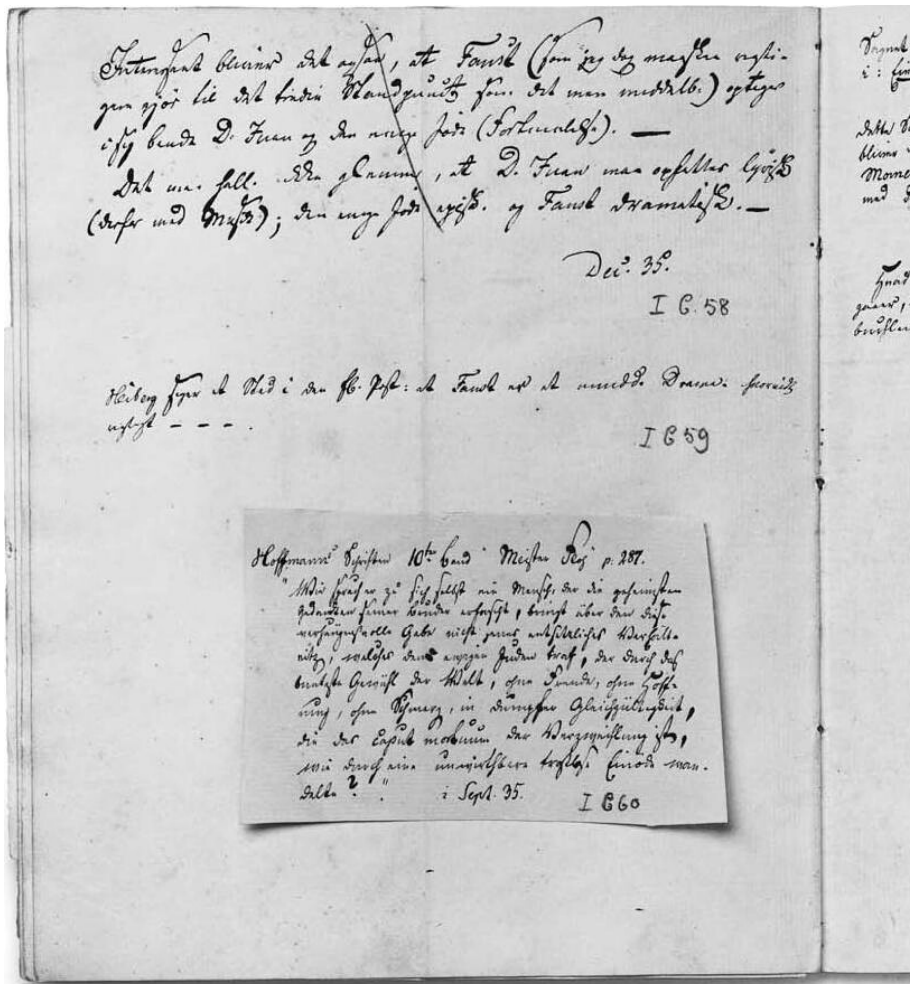 Interessant bliver det ogsaa, at Faust (som jeg dog maaskee rigti-
gere gjør til det tredie Standpunct som det mere middelb:) optager
i sig baade D. Juan og den evige Jøde (Fortvivlelse). —
Det maa hell. ikke glemmes, at D. Juan maa opfattes lyrisk
(derfor med Musik); den evige Jøde episk. og Faust dramatisk. —
Dec. 35.
I C. 58
Heiberg siger et Sted i den fl. Post: at Faust er et umidd. Drama. hvorvidt
rigtigt – – – .
I C 59
Hoffmanns Schriften 10ter Band Meister Floh p: 287.
"Wie sprach er zu sich selbst ein Mensch, der die geheimsten
Gedanken seiner Brüder erforscht, bringt über den diese
verhängnißvolle Gabe nicht jenes entsetzliches Verhält-
niß, welches dem ewigen Juden traf, der durch das
bunteste Gewühl der Welt, ohne Freude, ohne Hoff-
nung, ohne Schmerz, in dumpfer Gleichgültigkeit,
die das caput mortuum der Verzweiflung ist,
wie durch eine unwirthbare trostlose Einöde wan-
delte? "
i Sept. 35.
I C 60
Sagnet
dette
bliver
med
Hvad
gaaer,